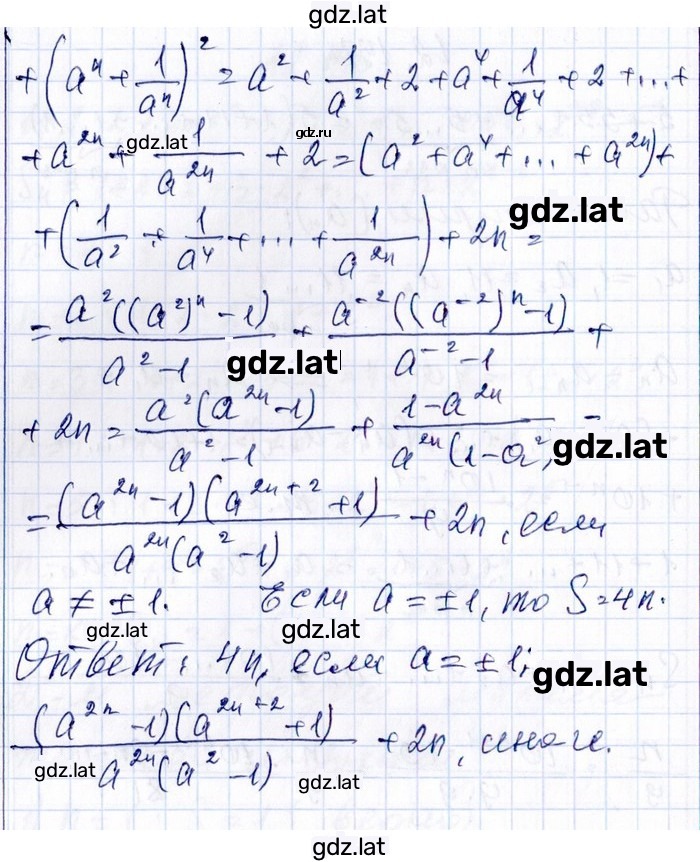 gdz.lat
+(aⁿ + 1/aⁿ)² = a² + 1/a² + 2 + a⁴ + 1/a⁴ + 2 + ... +
gdz.lat gdz.ru
+ a²ⁿ + 1/a²ⁿ + 2 = (a² + a⁴ + ... + a²ⁿ) +
gdz.lat
+ (1/a² + 1/a⁴ + ... + 1/a²ⁿ) + 2n =
= a²((a²)ⁿ - 1)/(a² - 1) + a⁻²((a⁻²)ⁿ - 1)/(a⁻² - 1) +
gdz.lat
+ 2n = a²(a²ⁿ - 1)/(a² - 1) + (1 - a²ⁿ)/(a²ⁿ(1 - a²) =
gdz.lat
= (a²ⁿ - 1)(a²ⁿ⁺² + 1)/(a²ⁿ(a² - 1)) + 2n, если
a ≠ ±1. Если a = ±1, то S = 4n.
gdz.lat gdz.lat
Ответ: 4n, если a = ±1;
gdz.lat
(a²ⁿ - 1)(a²ⁿ⁺² + 1)/(a²ⁿ(a² - 1)) + 2n, иначе.
gdz.lat gdz.lat
gdz.lat